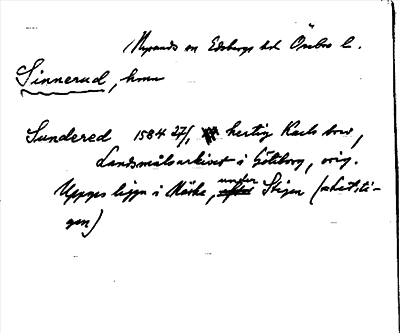 (Nysunds sn Edsbergs hd Örebro l.
Sinnerud, hmn
Sundered 1584 27/1, hertig Karls brev,
Landsmålsarkivet i Göteborg, orig.
Uppges ligga i Närke, under Stigen (
gen)